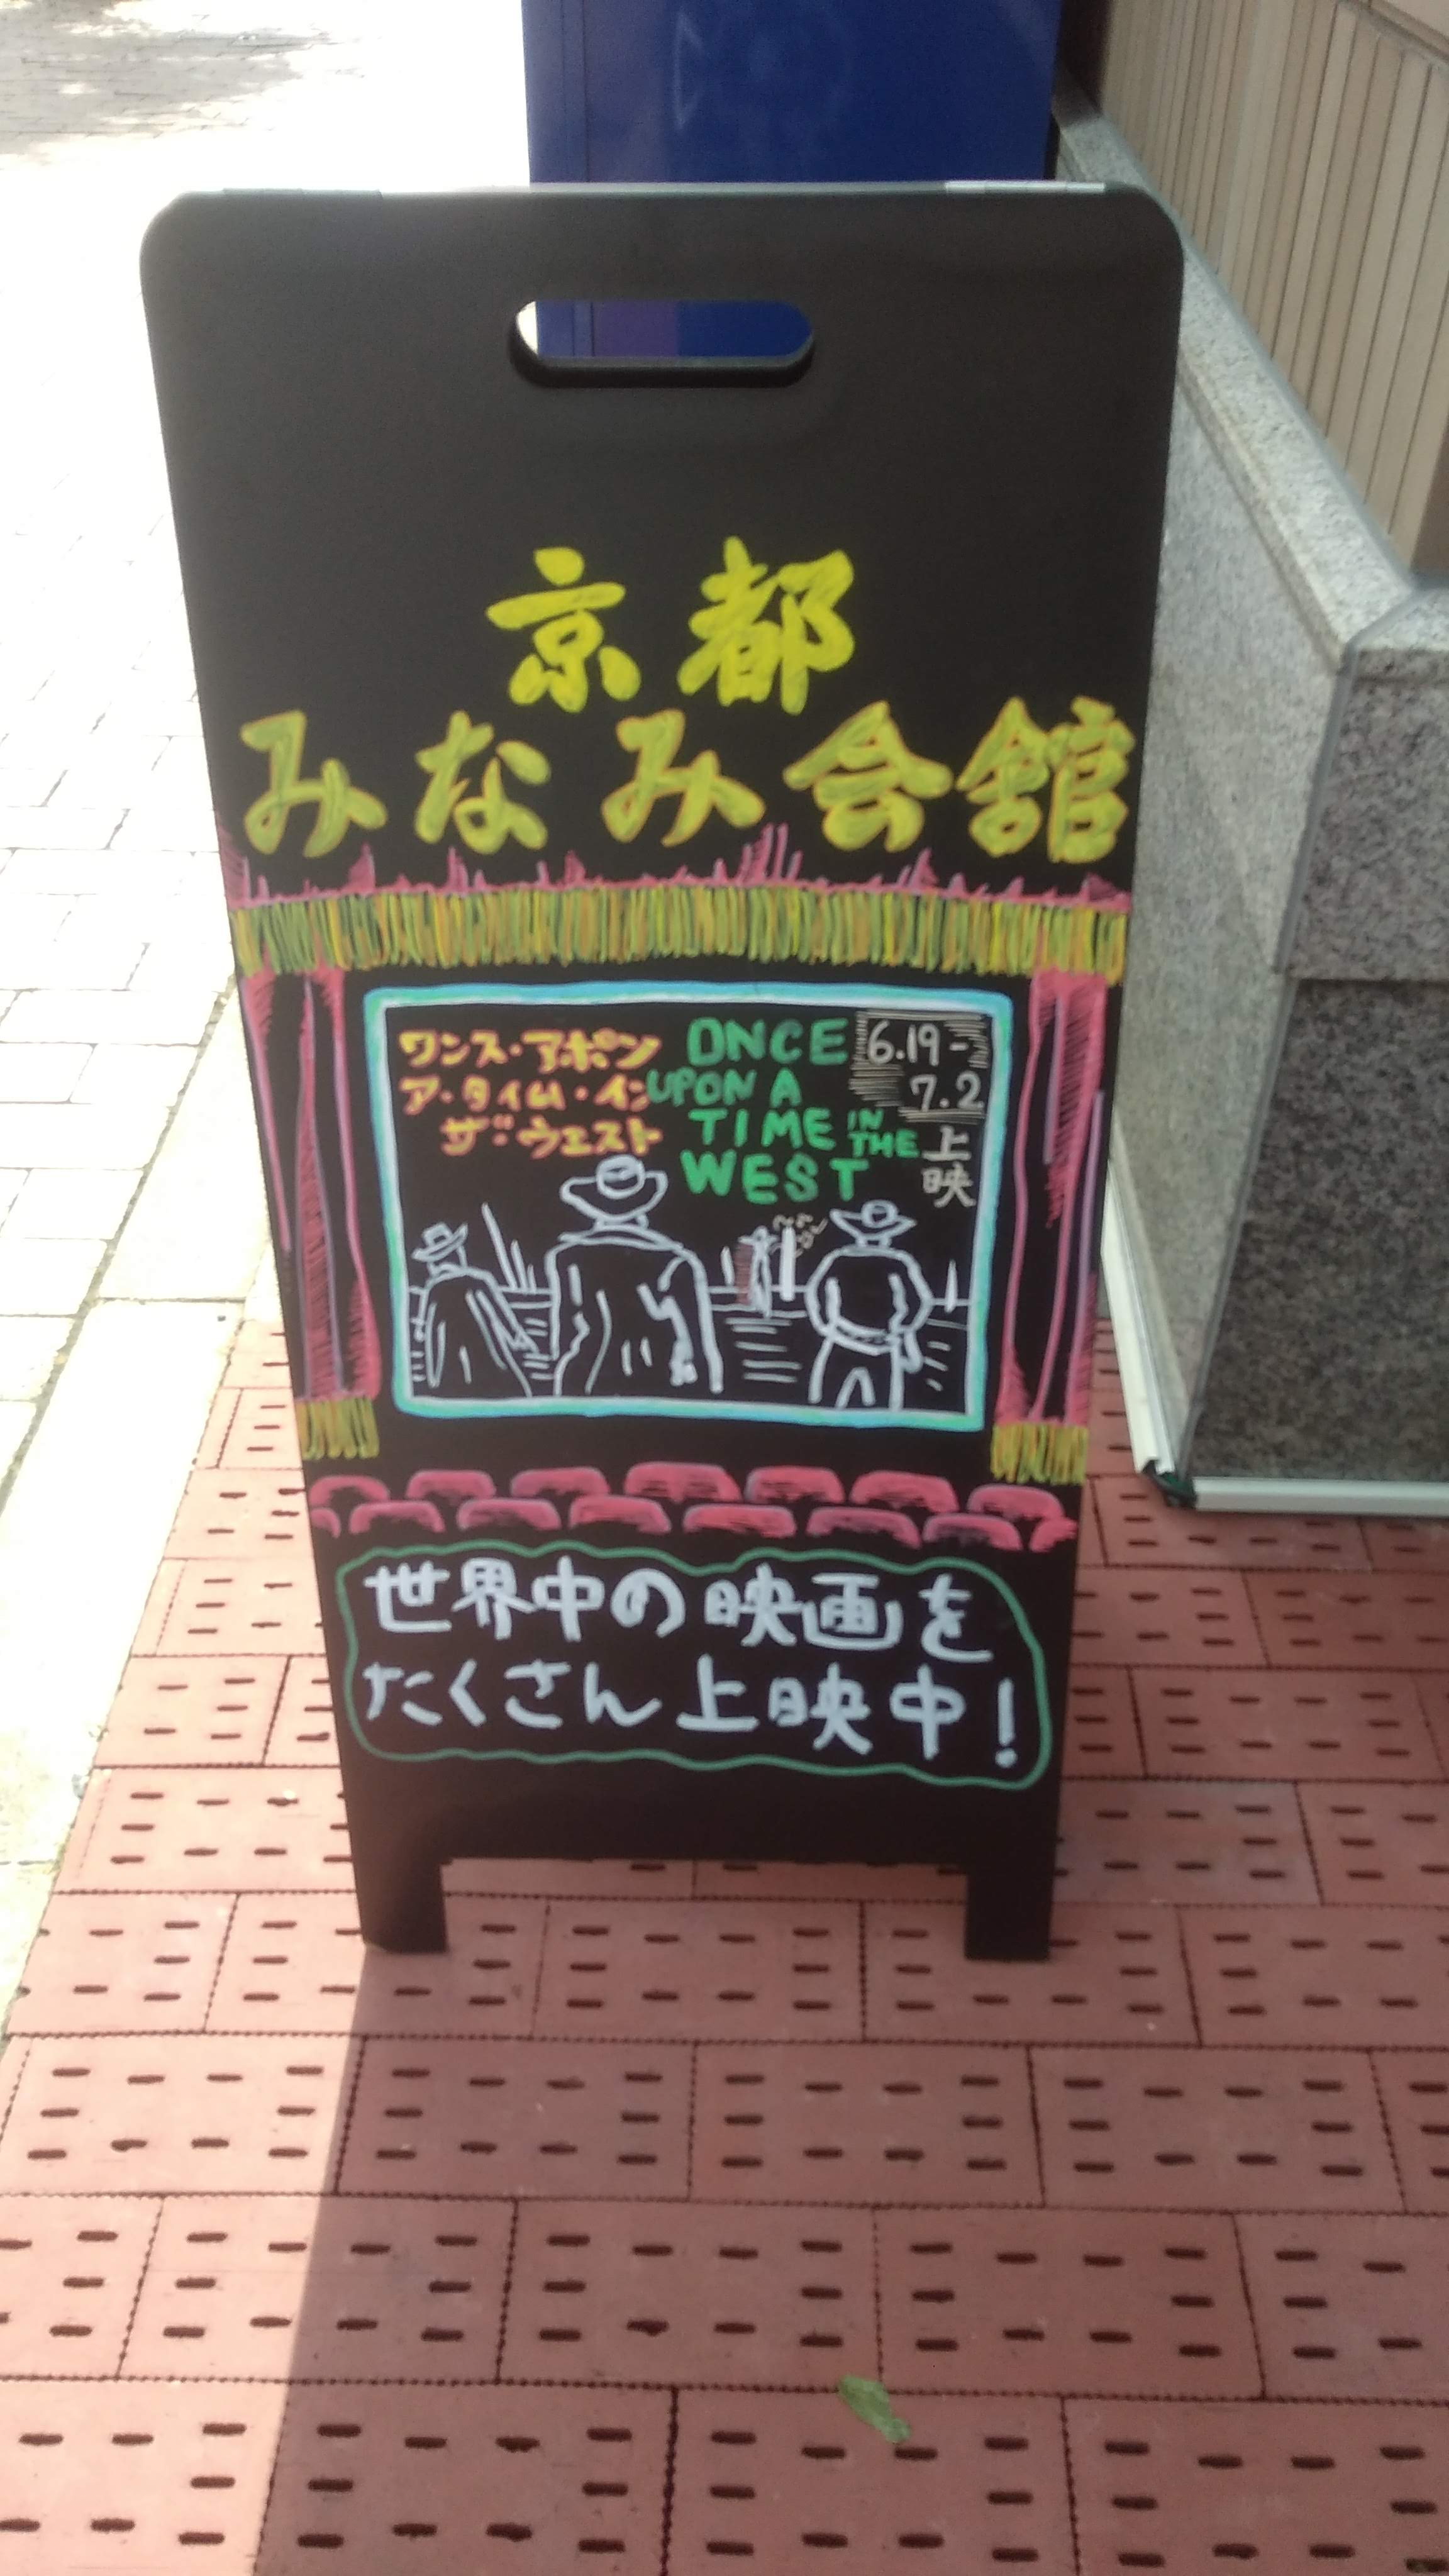 京都
みなみ会舘
ワンス・アポン
ア・タイム・イン
ザ・ウエスト
ONCE
UPON A
TIME IN
THE
WEST
6.19-
7.2
上
映
世界中の映画を
たくさん上映中!